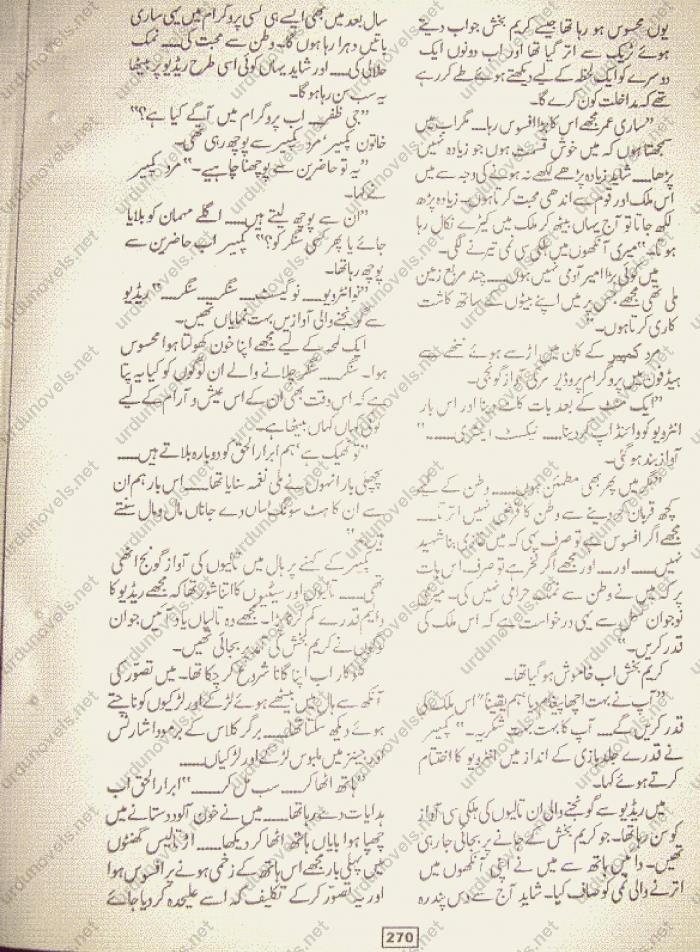 یوں محسوس ہو رہا تھا جیسے کریم بخش جواب دیتے
ہوئے ٹریک سے اتر گیا تھا اور اب دونوں ایک
دوسرے کو ایک لحظہ کے لیے دیکھتے ہوئے طے کر رہے
تھے کہ مداخلت کون کرے گا۔
”ساری عمر مجھے اس کا بڑا افسوس رہا۔ مگر اب میں
سمجھتا ہوں کہ میں خوش قسمت ہوں جو زیادہ نہیں
پڑھا۔۔۔۔ شاید زیادہ پڑھے لکھے نہ ہونے کی وجہ سے میں
اس ملک اور قوم سے اندھی محبت کرتا ہوں۔ زیادہ پڑھ
لکھ جاتا تو آج یہاں بیٹھ کر ملک میں کیڑے نکال رہا
ہوتا۔“ میری آنکھوں میں ہلکی سی نمی تیرنے لگی۔
میں کوئی بڑا امیر آدمی نہیں ہوں۔۔۔۔ چند مربع زمین
ملی تھی مجھے جس پر میں اپنے بیٹوں کے ساتھ کاشت
کاری کرتا ہوں۔“
مرد کمپیر کے کان میں اڑسے ہوئے ننھے سے
ہیڈ فون میں پروگرام پروڈیوسر کی آواز گونجی۔
”ایک منٹ کے بعد بات کاٹ دینا اور اس بار
انٹرویو کو وائنڈ اپ کر دینا۔۔۔۔ نیکسٹ اینٹری۔۔۔۔“
آواز بند ہو گئی۔
”مگر میں پھر بھی مطمئن ہوں۔۔۔۔ وطن کے لیے
کچھ قربان کر دینے سے وطن کا قرض نہیں اترتا۔۔۔۔
مجھے اگر افسوس ہے تو صرف یہی کہ میں غازی بنا شہید
نہیں۔۔۔۔ اور۔۔۔۔ اور مجھے اگر فخر ہے تو صرف اس بات
پر کہ میں نے وطن سے نمک حرامی نہیں کی۔ میری
نوجوان نسل سے یہی درخواست ہے کہ اس ملک کی
قدر کریں۔“
کریم بخش اب خاموش ہو گیا تھا۔
”آپ نے بہت اچھا پیغام دیا، ہم یقیناً اس ملک کی
قدر کریں گے۔۔۔۔ آپ کا بہت بہت شکریہ۔“ کمپیر
نے قدرے جلد بازی کے انداز میں انٹرویو کا اختتام
کرتے ہوئے کہا۔
میں ریڈیو سے گونجنے والی ان تالیوں کی ہلکی سی آواز
کو سن رہا تھا۔ جو کریم بخش کے جانے پر بجائی جا رہی
تھیں۔ دائیں ہاتھ سے میں نے اپنی آنکھوں میں
اترنے والی نمی کو صاف کیا۔ شاید آج سے دس پندرہ
سال بعد میں بھی ایسے ہی کسی پروگرام میں یہی ساری
باتیں دہرا رہا ہوں گا۔ وطن سے محبت کی۔۔۔۔ نمک
حلالی کی۔۔۔۔ اور شاید یہاں کوئی اسی طرح ریڈیو پر بیٹھا
یہ سب سن رہا ہو گا۔
”جی ظفر۔ اب پروگرام میں آگے کیا ہے؟“
خاتون کمپیر، مرد کمپیر سے پوچھ رہی تھی۔
”یہ تو حاضرین سے پوچھنا چاہیے۔“ مرد کمپیر
نے کہا۔
”ان سے پوچھ لیتے ہیں۔۔۔۔ اگلے مہمان کو بلایا
جائے یا پھر کسی سنگر کو؟“ کمپیر اب حاضرین سے
پوچھ رہا تھا۔
”نو انٹرویو۔۔۔۔ نو گیسٹ۔۔۔۔ سنگر۔۔۔۔ سنگر۔“ ریڈیو
سے گونجنے والی آوازیں بہت نمایاں تھیں۔
ایک لمحہ کے لیے مجھے اپنا خون کھولتا ہوا محسوس
ہوا۔ سنگر۔۔۔۔ سنگر چلانے والے ان لوگوں کو کیا یہ پتا
ہے کہ اس وقت بھی ان کے اس عیش و آرام کے لیے
کوئی کہاں کہاں بیٹھا ہے۔
”تو ٹھیک ہے، ہم ابرار الحق کو دوبارہ بلاتے ہیں۔۔۔۔
پچھلی بار انہوں نے ملی نغمہ سنایا تھا۔۔۔۔ اس بار ہم ان
سے ان کا ہٹ سونگ اساں دے جاناں مال و مال سنتے
ہیں۔“
کمپیر کے کہنے پر ہال میں تالیوں کی آواز گونج اٹھی
تھی۔۔۔۔ تالیوں اور سیٹیوں کا اتنا شور تھا کہ مجھے ریڈیو کا
والیم قدرے کم کرنا پڑا۔ مجھے وہ تالیاں یاد آئیں جو ان
لوگوں نے کریم بخش کی آمد پر بجائی تھیں۔
گلوکار اب اپنا گانا شروع کر چکا تھا۔ میں تصور کی
آنکھ سے ہال میں بیٹھے ہوئے لڑکے اور لڑکیوں کو ناچتے
ہوئے دیکھ سکتا تھا۔۔۔۔ برگر کلاس کے برمودا شارٹس
اور جینز میں ملبوس لڑکے اور لڑکیاں۔۔۔۔
”ہاتھ اٹھا کر۔۔۔۔ سب مل کر۔۔۔۔“ ابرار الحق اب
ہدایات دے رہا تھا۔۔۔۔ میں نے خون آلود دستانے میں
چھپا ہوا بایاں ہاتھ اٹھا کر دیکھا۔۔۔۔ اڑتالیس گھنٹوں
میں پہلی بار مجھے اس ہاتھ کے زخمی ہونے پر افسوس ہوا
اور یہ تصور کر کے تکلیف کہ اسے علیحدہ کر دیا جائے
270
urdunovels.net